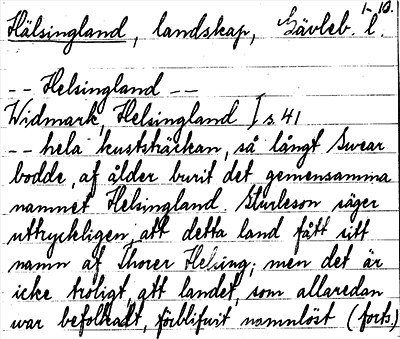 1-10.
Hälsingland, landskap, Gävleb. l.
-- Helsingland --
Widmark, Helsingland I s. 41
-- hela kuststräckan, så långt Swear
bodde, af ålder burit det gemensamma
namnet Helsingland. Sturleson säger
uttryckligen, att detta land fått sitt
namn af Thorer Helsing; men det är
icke troligt, att landet, som allaredan
war befolkadt, förblifwit namnlöst (forts.)